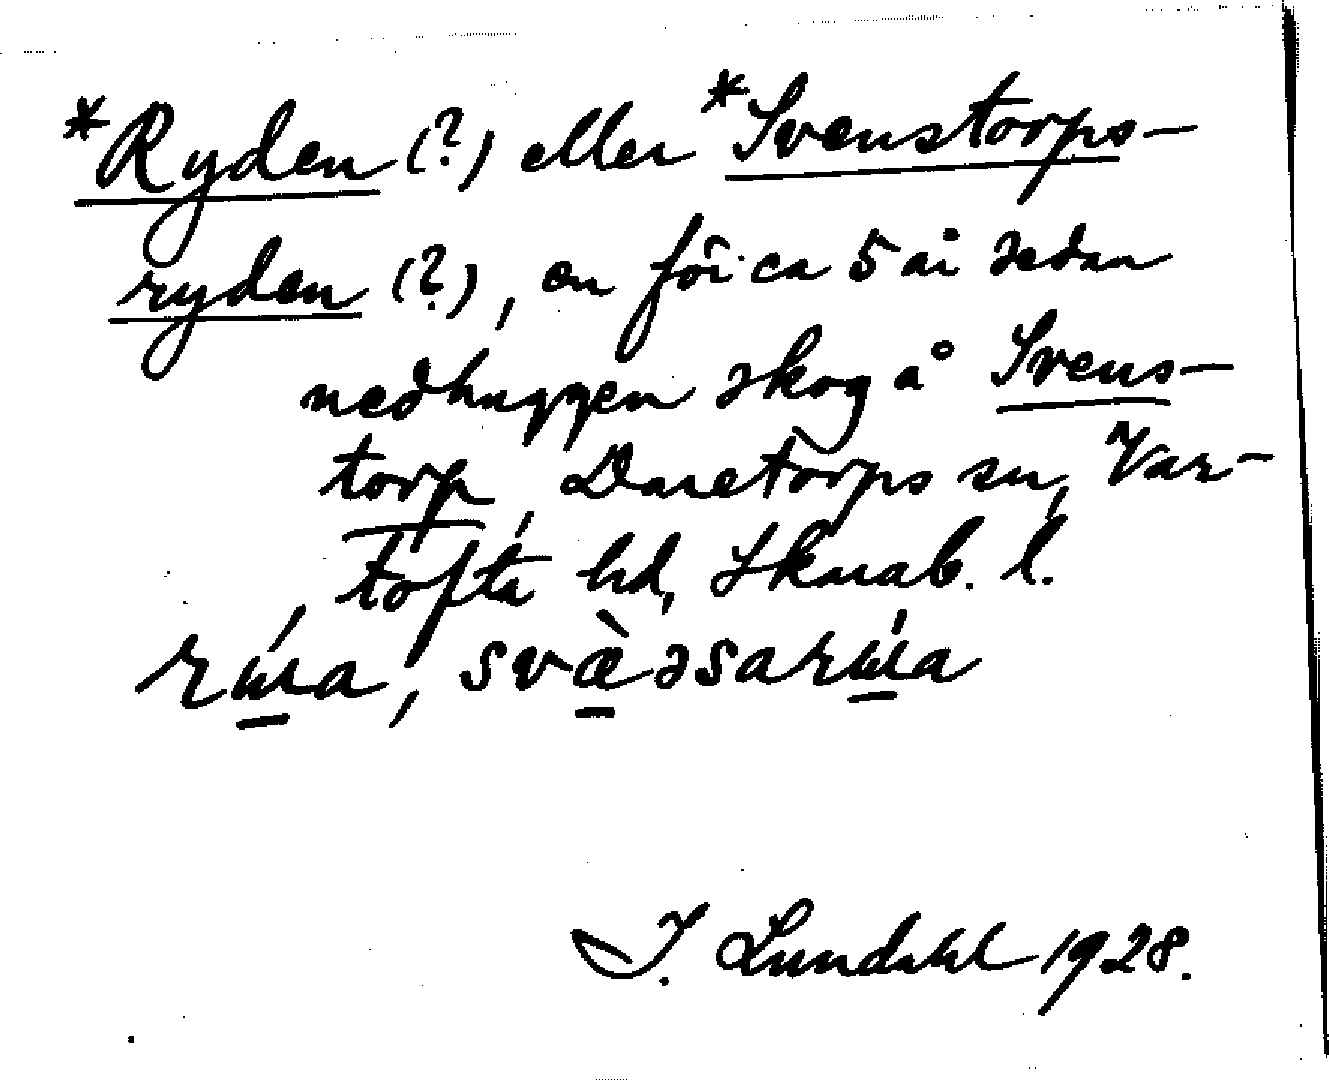 *Ryden (?) eller *Svenstorps-
ryden (?), en för ca 5 år sedan
nedhuggen skog å Svens-
torp, Daretorps sn, Var-
tofta hd, Skarab. l.
I. Lundahl 1928.